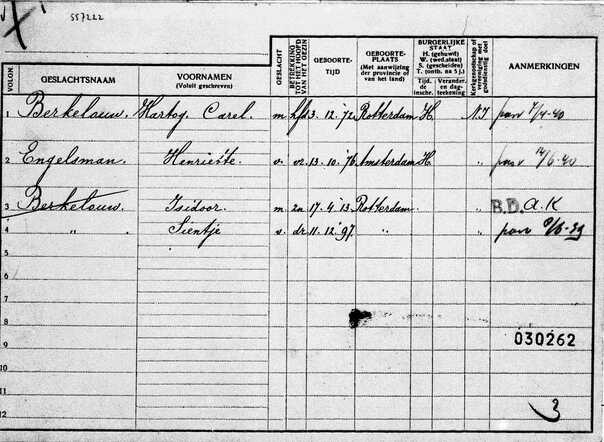 557222
VOLGN.
GESLACHTSNAAM
VOORNAMEN
(Voluit geschreven)
GESLACHT
BETREKKING
TOT HET HOOFD
VAN HET GEZIN
GEBOORTE-
TIJD
GEBOORTE-
PLAATS
(Met aanwijzing
der provincie of
van het land)
BURGERLIJKE
STAAT
H. (gehuwd)
W. (wed.staat)
S. (gescheiden)
T. (ontb. na 5 j.)
Tijd. de
inschr.
Verander.
en dag-
teekening
Kerkgenootschap of
vereeniging met
godsdienstig doel
AANMERKINGEN
1 Berkelouw. Hartog Carel. m. hfd 3. 12. '72 Rotterdam H N.I
2 Engelsman. Henriëtte. v. 13. 10. '76 Amsterdam H "
3 Berkelouw. Isidoor. m. zn 17. 4 '13. Rotterdam " B.D. a.K
4 " Sientje v. dr. 11. 12. '97. " "
5
6
7
8
9 030262
10
11
12 3